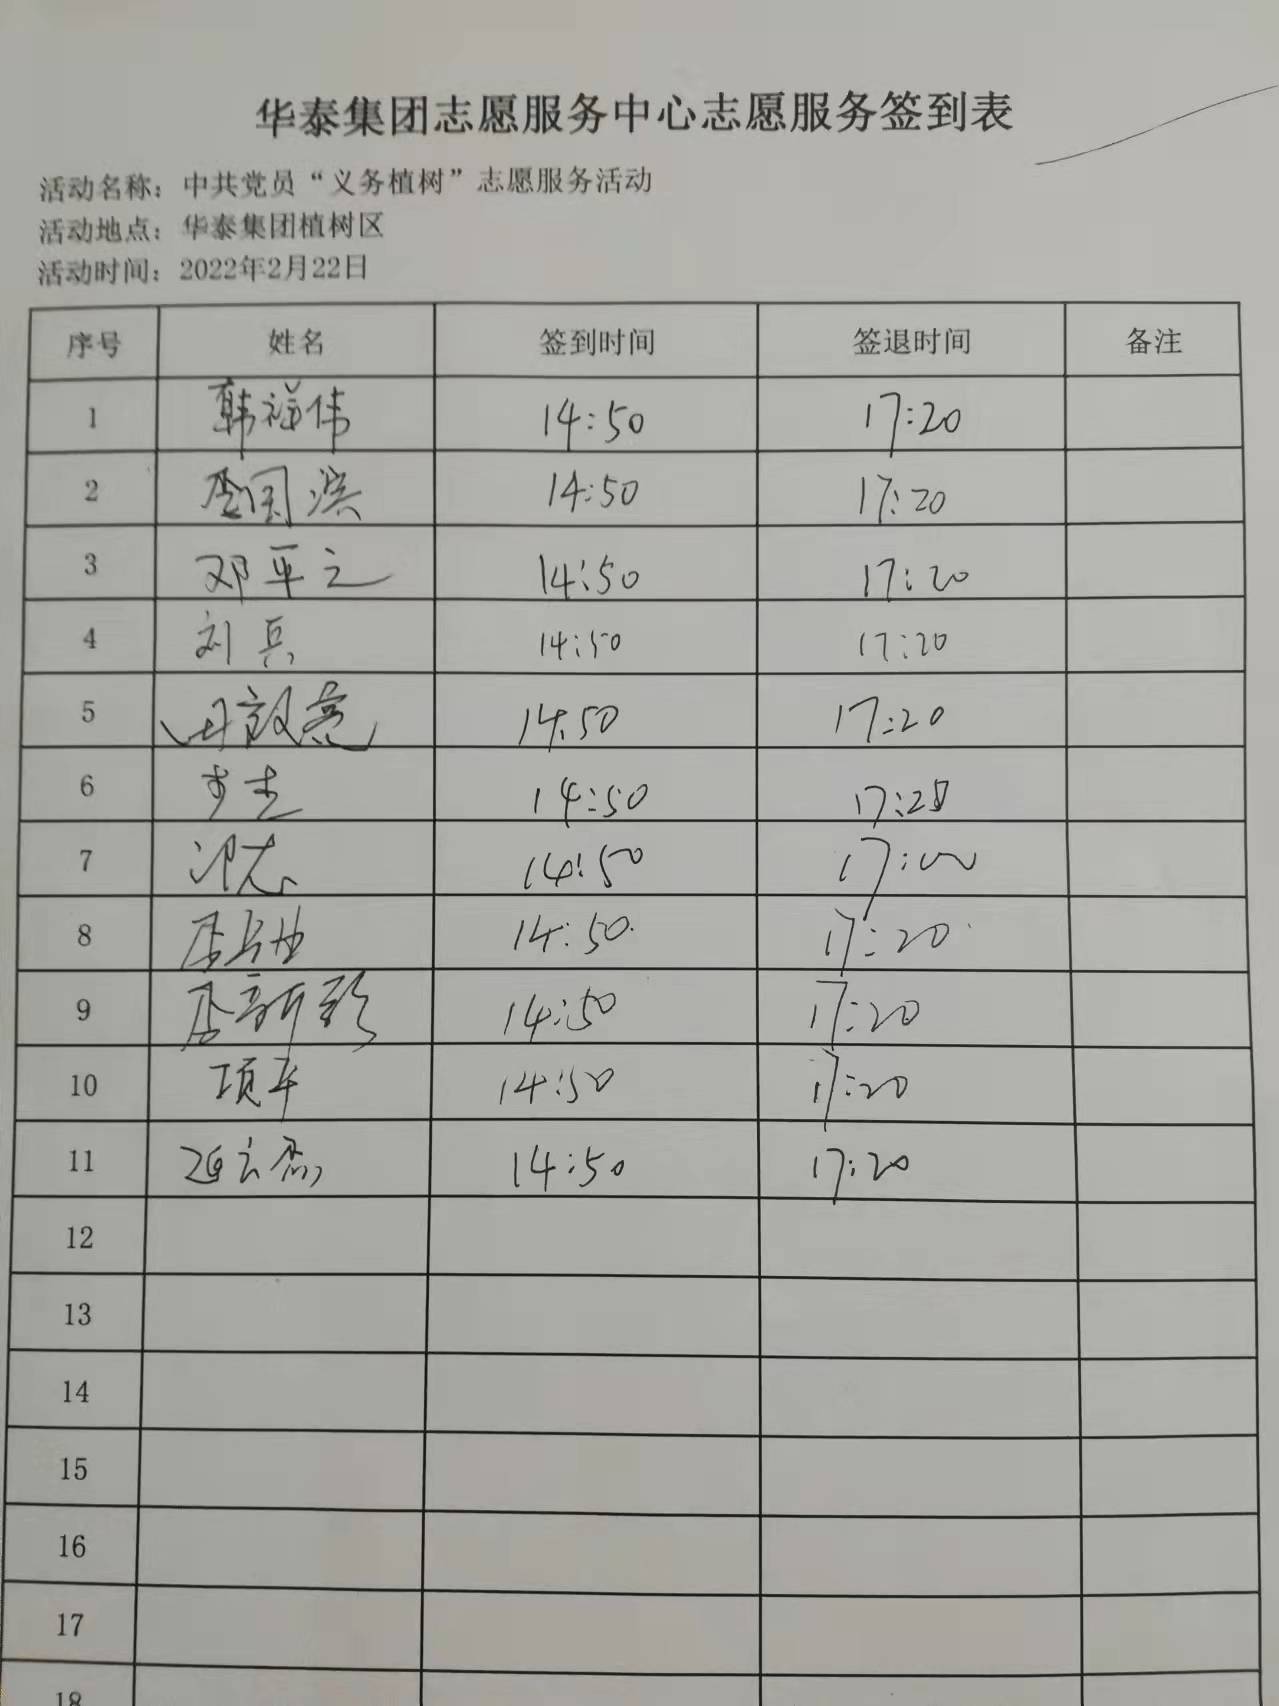 华泰集团志愿服务中心志愿服务签到表
活动名称：中共党员“义务植树”志愿服务活动
活动地点：华泰集团植树区
活动时间：2022年2月22日
序号 姓名 签到时间 签退时间 备注
1 韩祥伟 14:50 17:20
2 李国滨 14:50 17:20
3 邓平之 14:50 17:20
4 刘兵 14:50 17:20
5 14:50 17:20
6 14:50 17:20
7 14:50
8 14:50 17:20
9 14:50 17:20
10 项平 14:50 17:20
11 14:50 17:20
12
13
14
15
16
17
18